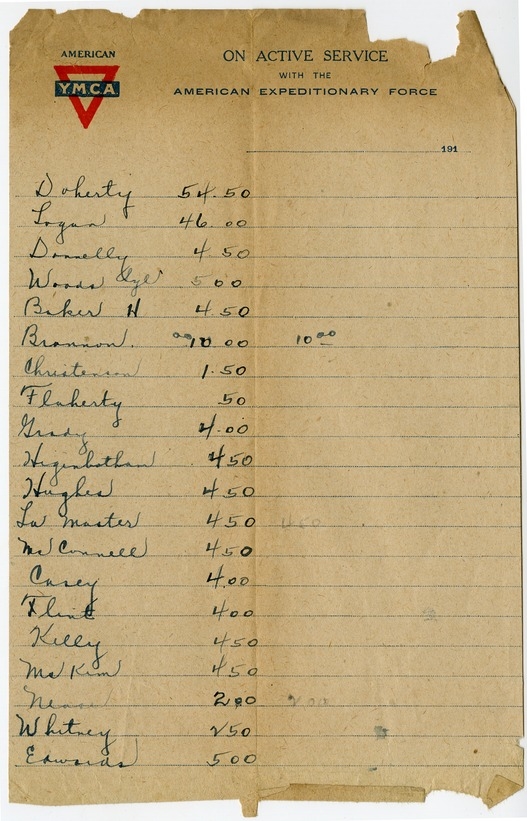 AMERICAN
YMCA
ON ACTIVE SERVICE
WITH THE
AMERICAN EXPEDITIONARY FORCE
191
Doherty 54.50
Logan 46.00
Donnelly 4.50
Woods 5.00
Baker H 4.50
Brannon. 10.00 10 00
Christensen 1.50
Flaherty 50
Grady 4.00
Higenbotham 4 50
Hughes 4 50
La Master 4 50 4 50
McConnell 4 50
Casey 4.00
Flint 4 00
Killy 4 50
McKim 4 50
2 00 2 00
Whitney 2 50
Edwards 5 00